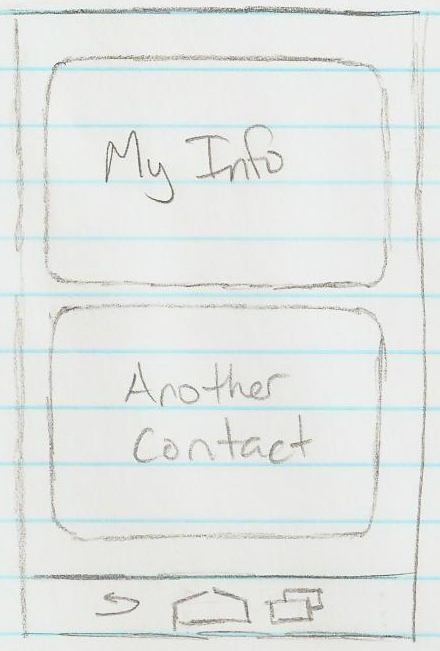 My Info
Another
Contact